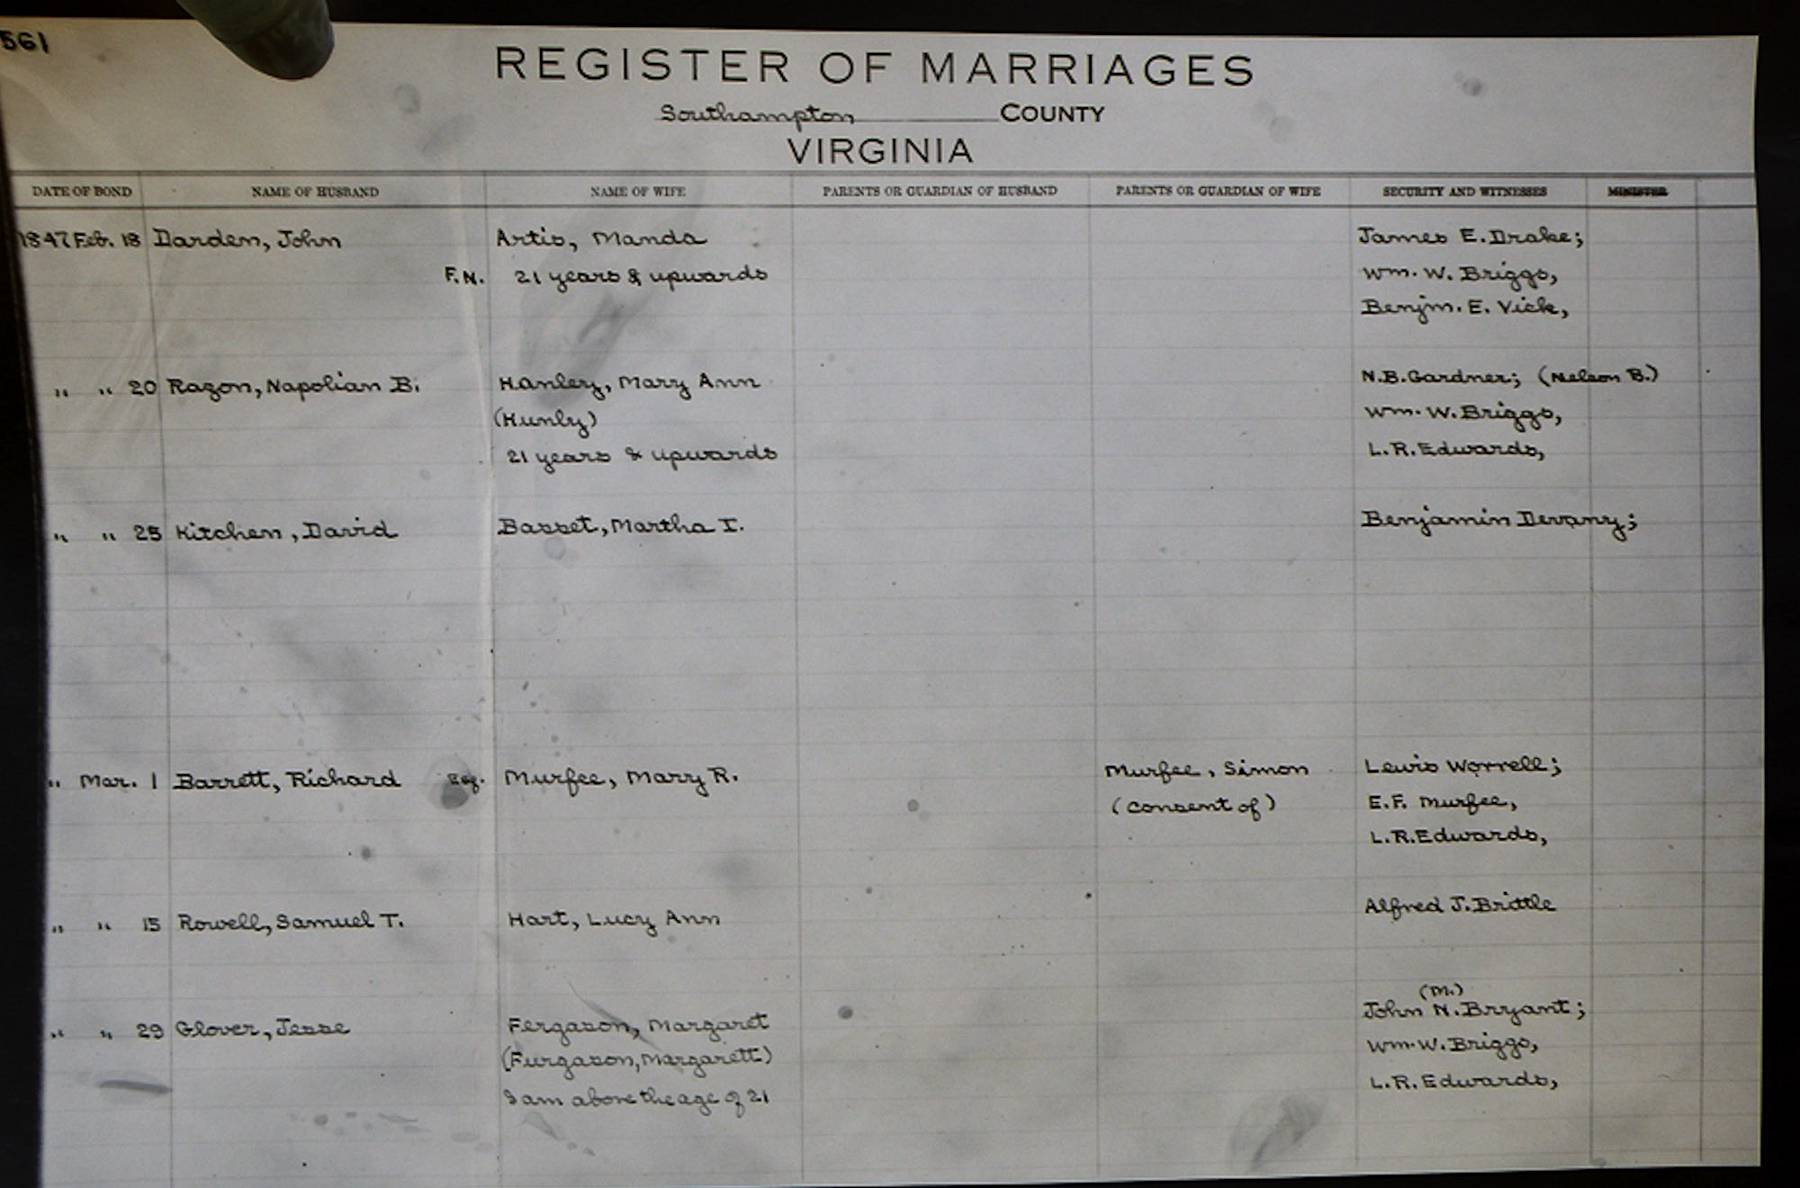 561
REGISTER OF MARRIAGES
Southampton COUNTY
VIRGINIA
DATE OF BOND NAME OF HUSBAND NAME OF WIFE PARENTS OR GUARDIAN OF HUSBAND PARENTS OR GUARDIAN OF WIFE SECURITY AND WITNESSES MINISTER
1847 Feb. 18 Darden, John Artis, Manda James E. Drake;
F.N. 21 years & upwards Wm. W. Briggs,
Benjm. E. Vick,
" " 20 Razon, Napolian B. Hanley, Mary Ann N.B. Gardner; (Nelson B.)
(Hunly) Wm. W. Briggs,
21 years & upwards L.R. Edwards,
" " 25 Kitchen, David Basset, Martha I. Benjamin Devany;
" Mar. 1 Barrett, Richard Murfee, Mary R. Murfee, Simon Lewis Worrell;
(consent of) E.F. Murfee,
L.R. Edwards,
" " 15 Rowell, Samuel T. Hart, Lucy Ann Alfred J. Brittle
(M.)
" " 29 Glover, Jesse Fergason, Margaret John N. Bryant;
(Furgason, Margarett) Wm. W. Briggs,
I am above the age of 21 L.R. Edwards,